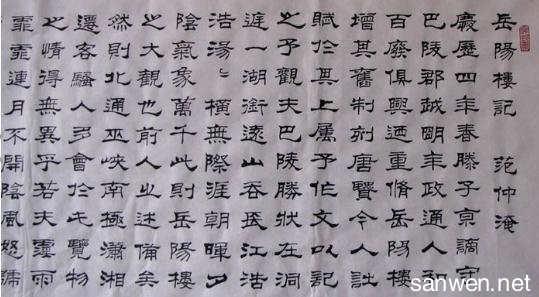 岳陽樓記 范仲淹
慶歷四年春滕子京謫守
巴陵郡越明年政通人和
百廢俱興迺重脩岳陽樓
增其舊制刻唐賢今人詩
賦於其上屬予作文以記
之予觀夫巴陵勝狀在洞
庭一湖銜遠山吞長江浩
浩湯〻橫無際涯朝暉夕
陰氣象萬千此則岳陽樓
之大觀也前人之述備矣
然則北通巫峽南極瀟湘
遷客騷人多會於此覽物
之情得無異乎若夫霪雨
霏霏連月不開陰風怒
sanwen.net